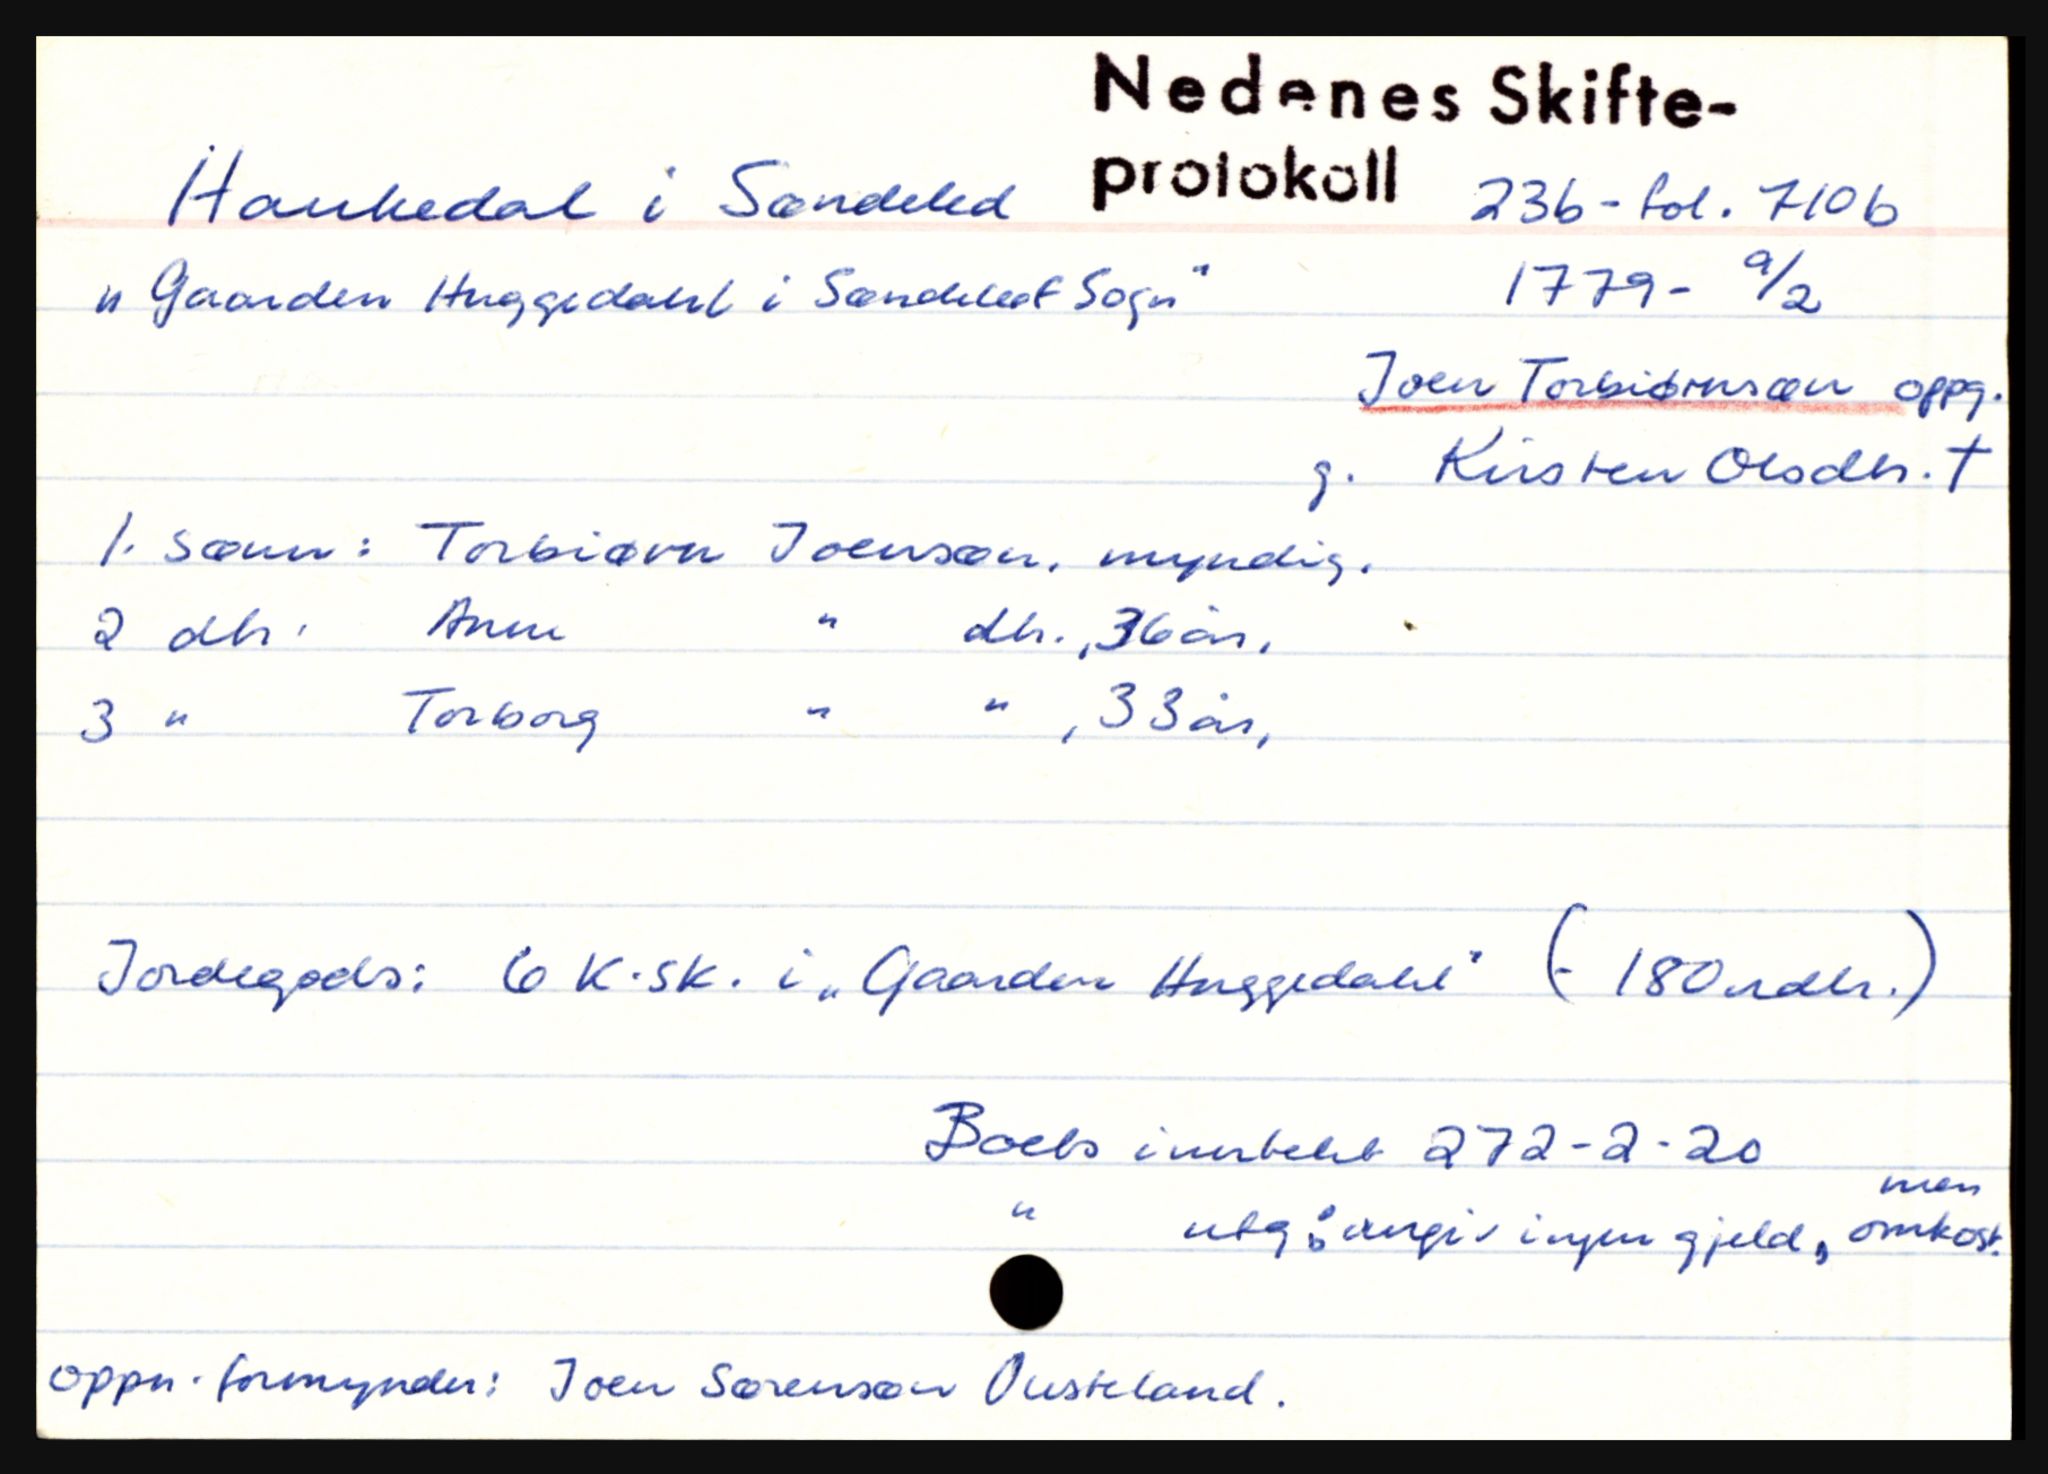 Nedenes Skifte-
protokoll
Haukedal i Søndeled 23b - fol. 710b
"Gaarden Huggedahl i Søndeled Sogn" 1779 - 9/2
Joen Torbiørnsøn oppg.
g. Kirsten Olsdtr. †
1. sønn: Torbiørn Joensøn, myndig.
2 dtr. Anne " dtr., 36 år,
3 " Torborg " " , 33 år,
Jordegods: 6 K.sk. i "Gaarden Huggedahl" (- 180 rdlr.)
Boets innbetalt 272-2-20
" utg: angiv ingen gjeld, men omkost.
oppn. formynder: Joen Sørensøn Ousteland.